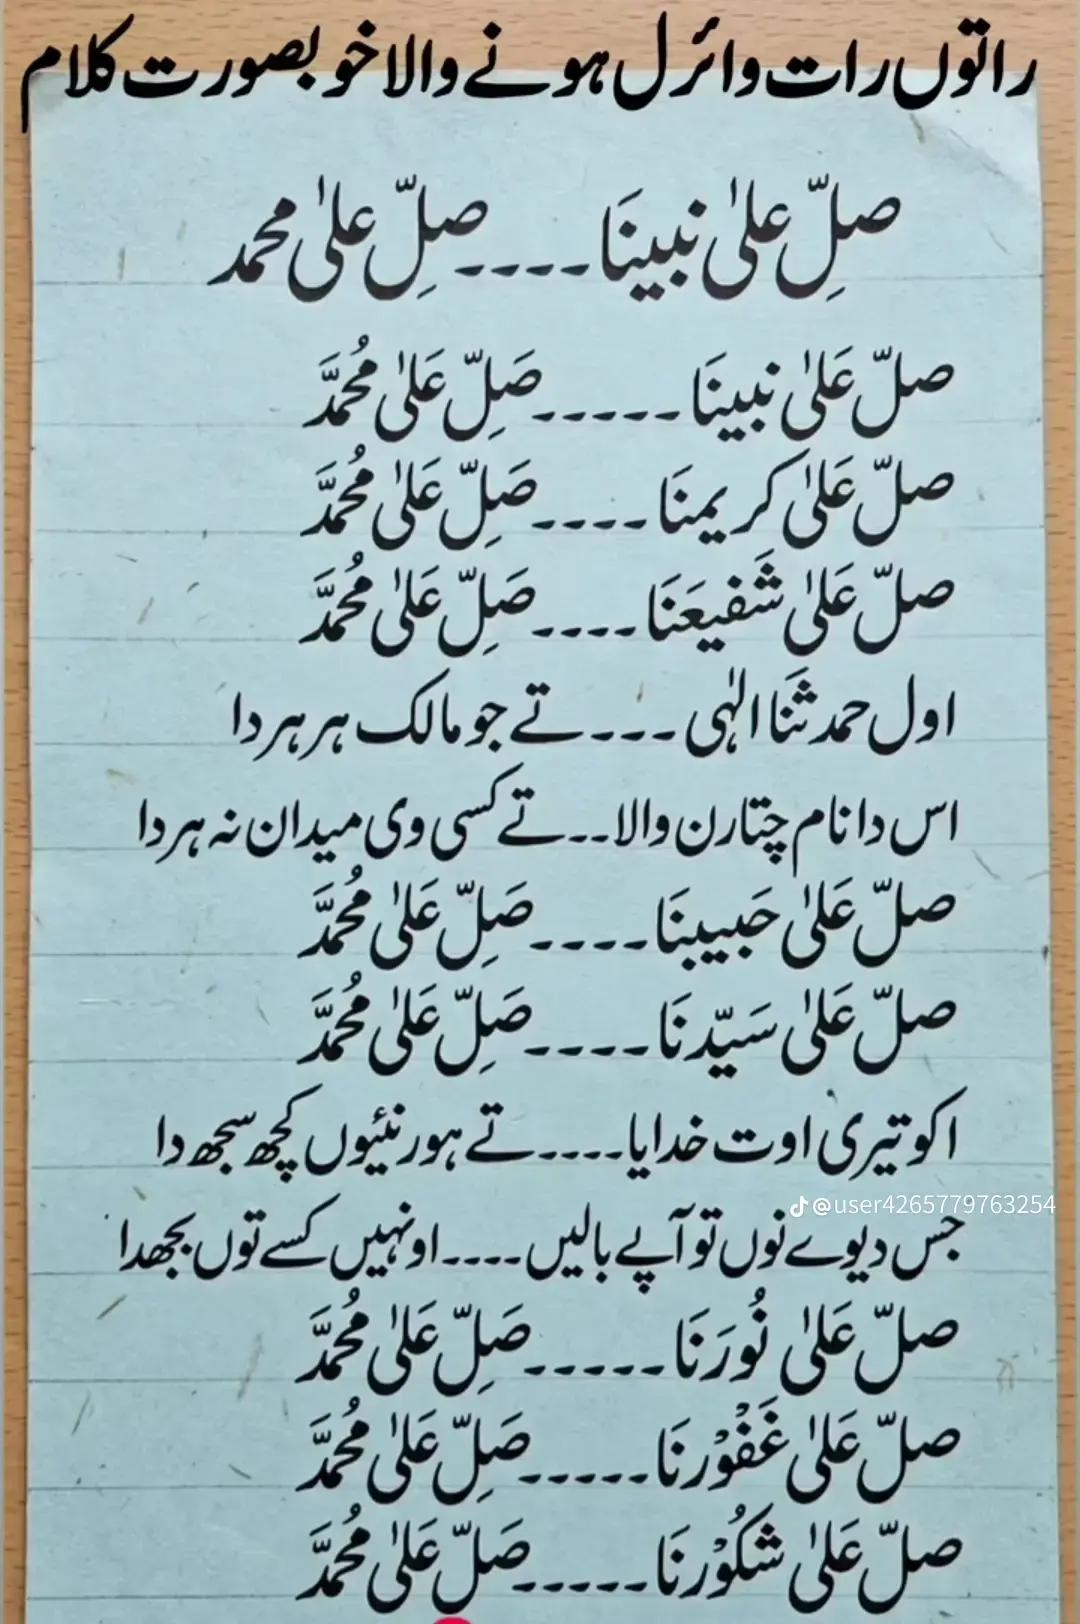 راتوں رات وائرل ہونے والا خوبصورت کلام
صلِّ علیٰ نبینَا ۔۔۔۔ صلِّ علیٰ محمد
صلّ عَلیٰ نبینَا ۔۔۔۔۔ صَلِّ عَلیٰ مُحمَّدَ
صلّ عَلیٰ کریمنَا ۔۔۔۔ صَلِّ عَلیٰ مُحمَّدَ
صلّ عَلیٰ شَفیعَنَا ۔۔۔۔ صَلِّ عَلیٰ مُحمَّدَ
اول حمد ثَنا الٰہی ۔۔۔ تے جو مالک ہر ہر دا
اس دا نام چتارن والا ۔۔ تے کسی وی میدان نہ ہردا
صلّ عَلیٰ حَبیبنَا ۔۔۔۔ صَلِّ عَلیٰ مُحمَّدَ
صلّ عَلیٰ سَیّدنَا ۔۔۔۔ صَلِّ عَلیٰ مُحمَّدَ
اکو تیری اوت خدایا ۔۔۔۔ تے ہور نئیوں کچھ سجھ دا
@user4265779763254
جس دیوے نوں تو آپے بالیں ۔۔۔۔ او نہیں کسے توں بجھدا
صلّ عَلیٰ نُورَنَا ۔۔۔۔۔ صَلِّ عَلیٰ مُحمَّدَ
صلّ عَلیٰ غَفُوْرنَا ۔۔۔۔۔ صَلِّ عَلیٰ مُحمَّدَ
صلّ عَلیٰ شکُوْرنَا ۔۔۔۔۔ صَلِّ عَلیٰ مُحمَّدَ